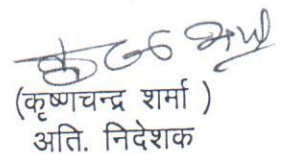 (कृष्णचन्द्र शर्मा )
अति. निदेशक